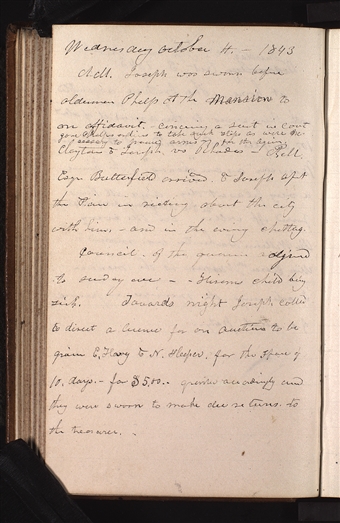 Wednesday October 4. - 1843
A.M. Joseph was sworn before
alderman Phelps at the Mansion to
an affidavit. - concerning a suit in
to take such steps as were
Clayton & Joseph, vs Rhodes Bell.
Esqr Butterfield arrived & Joseph spent
the P.M in riding about the city
with him. - and in the evening chatting.
Council of the quorum adjourned
to sunday eve - - Hirams child being
sick. Towards night Joseph called
to direct a licence for an auction to be
given E. & N. for the space of
10. days. - for $5.00.. granted accordingly and
they were sworn to make due returns to
the treasurer. -